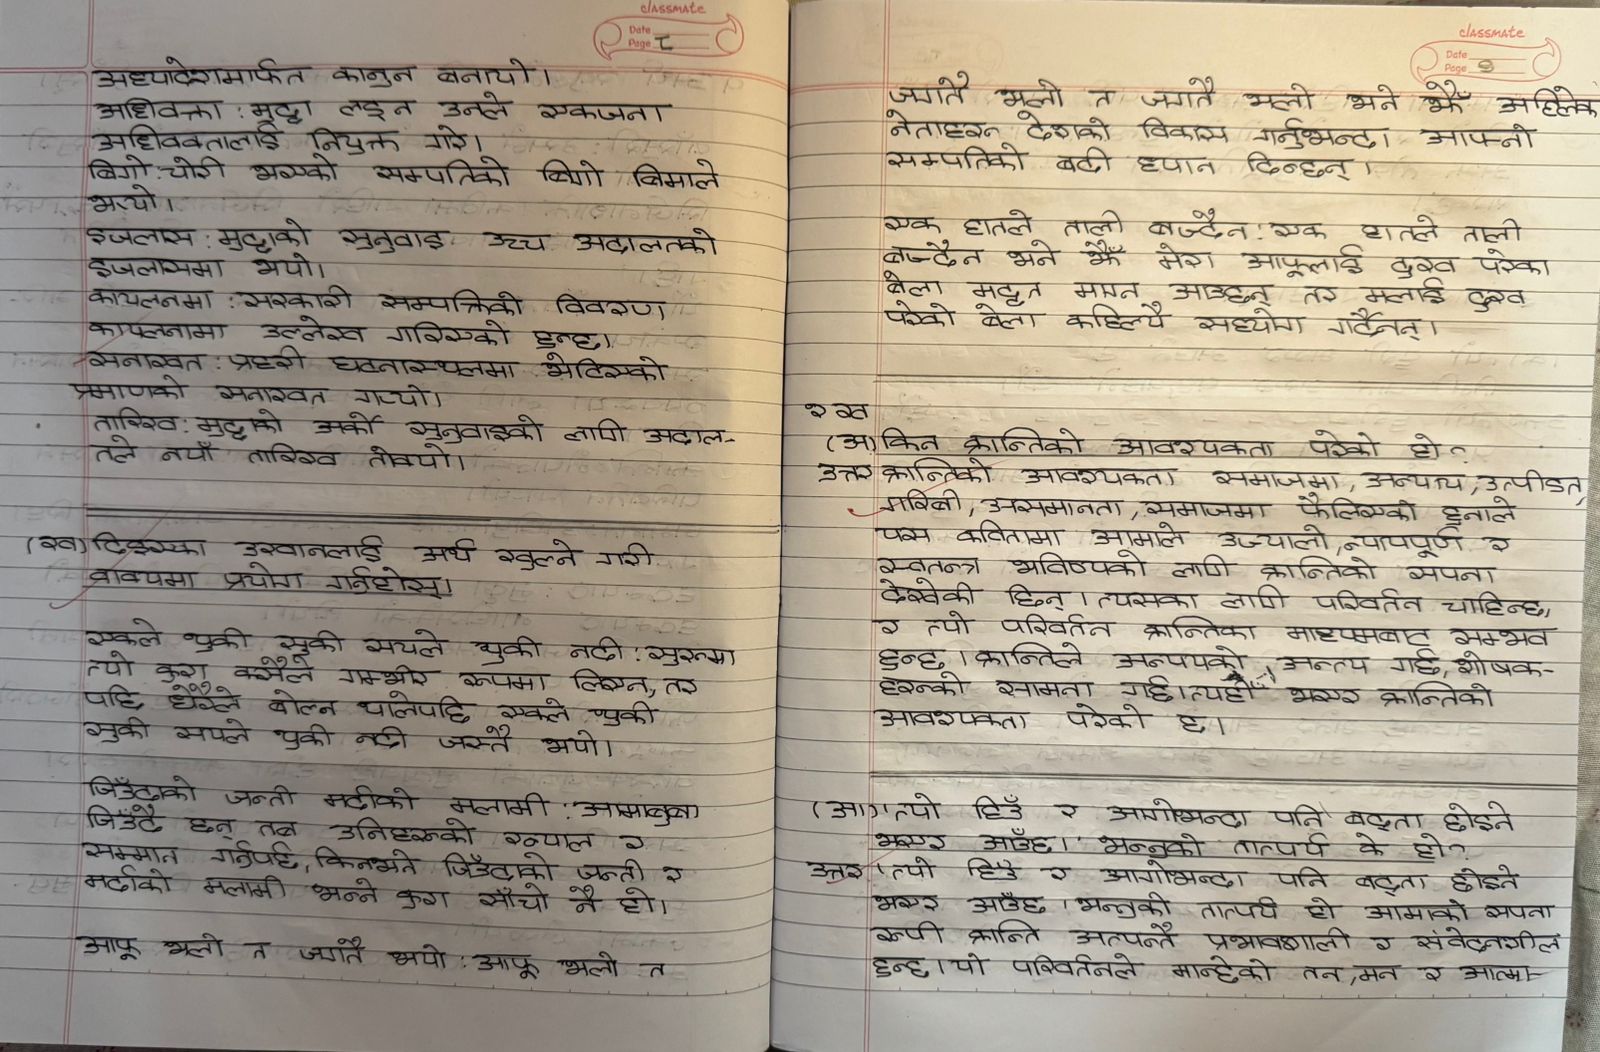 classmate
Date
Page ८
अध्यादेशमार्फत कानुन बनायो।
अधिवक्ता : मुद्दा लड्न उनले एकजना
अधिवक्तालाई नियुक्त गरे।
बिगो : चोरी भएको सम्पतिको बिगो बिमाले
भऱ्यो।
इजलास : मुद्दाको सुनुवाइ उच्च अदालतको
इजलासमा भयो।
कायलनामा : सरकारी सम्पत्तिको विवरण
कायलनामा उल्लेख गरिएको हुन्छ।
सनाखत : प्रहरी घटनास्थलमा भेटिएको
प्रमाणको सनाखत गऱ्यो।
तारिख : मुद्दाको अर्को सुनुवाइको लागि अदाल-
तले नयाँ तारिख तोक्यो।
(ख) दिइएका उखानलाई अर्थ खुल्ने गरी
वाक्यमा प्रयोग गर्नुहोस्।
एकले थुकी सुकी सयले थुकी नदी : सुरुमा
त्यो कुरा कसैले गम्भीर रूपमा लिएन, तर
पछि धेरैले बोल्न थालेपछि एकले थुकी
सुकी सयले थुकी नदी जस्तै भयो।
जिउँदाको जन्ती मर्दाको मलामी : आमाबुबा
जिउँदै छन् तब उनिहरूको ख्याल र
सम्मान गर्नुपर्छ, किनभने जिउँदाको जन्ती र
मर्दाको मलामी भन्ने कुरा साँचो नै हो।
आफू भलो त जगतै भयो : आफू भलो त
classmate
Date
Page ९
जगतै भलो त जगतै भलो भने झैँ अहिलेक
नेताहरू देशको विकास गर्नुभन्दा आफ्नो
सम्पतिको बढी ध्यान दिन्छन्।
एक हातले ताली बज्दैन : एक हातले ताली
बज्दैन भने झैँ मेरा आफूलाई दुख परेका
बेला मद्दत माग्न आउछन् तर मलाई दुख
परेको बेला कहिल्यै सहयोग गर्दैनन्।
२ ख
(अ) किन क्रान्तिको आवश्यकता परेको हो?
उत्तर क्रान्तिको आवश्यकता समाजमा, अन्याय, उत्पीडन,
गरिबी, असमानता, समाजमा फैलिएको हुनाले
यस कवितामा आमाले उज्यालो, न्यायपूर्ण र
स्वतन्त्र भविष्यको लागि क्रान्तिको सपना
देखेकी छिन्। त्यसका लागि परिवर्तन चाहिन्छ,
र त्यो परिवर्तन क्रान्तिका माध्यमबाट सम्भव
हुन्छ। क्रान्तिले अन्यायको, अन्त्य गर्छ, शोषक-
हरूको सामना गर्छ। त्यही भएर क्रान्तिको
आवश्यकता परेको छ।
(आ) 'त्यो हिउँ र आगोभन्दा पनि बढ्ता छोइने
भएर आउँछ।' भन्नुको तात्पर्य के हो?
उत्तर 'त्यो हिउँ र आगोभन्दा पनि बढ्ता छोइने
भएर आउँछ।' भन्नुको तात्पर्य हो आमाको सपना
रूपी क्रान्ति अत्यन्तै प्रभावशाली र संवेदनशील
हुन्छ। यो परिवर्तनले मान्छेको तन, मन र आत्मा-